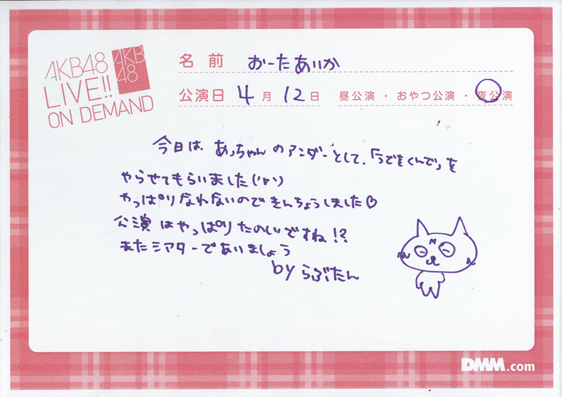 AKB48
LIVE!!
ON DEMAND
AKB
48
名前 おーたあいか
公演日 4月12日 昼公演・おやつ公演・夜公演
今日は、あっちゃんのアンダーとして、「うでをくんで」を
やらせてもらいました(^o^)
やっぱりなれないのできんちょうしました♡
公演はやっぱりたのしいですね!?
またシアターであいましょう
by らぶたん
DMM.com